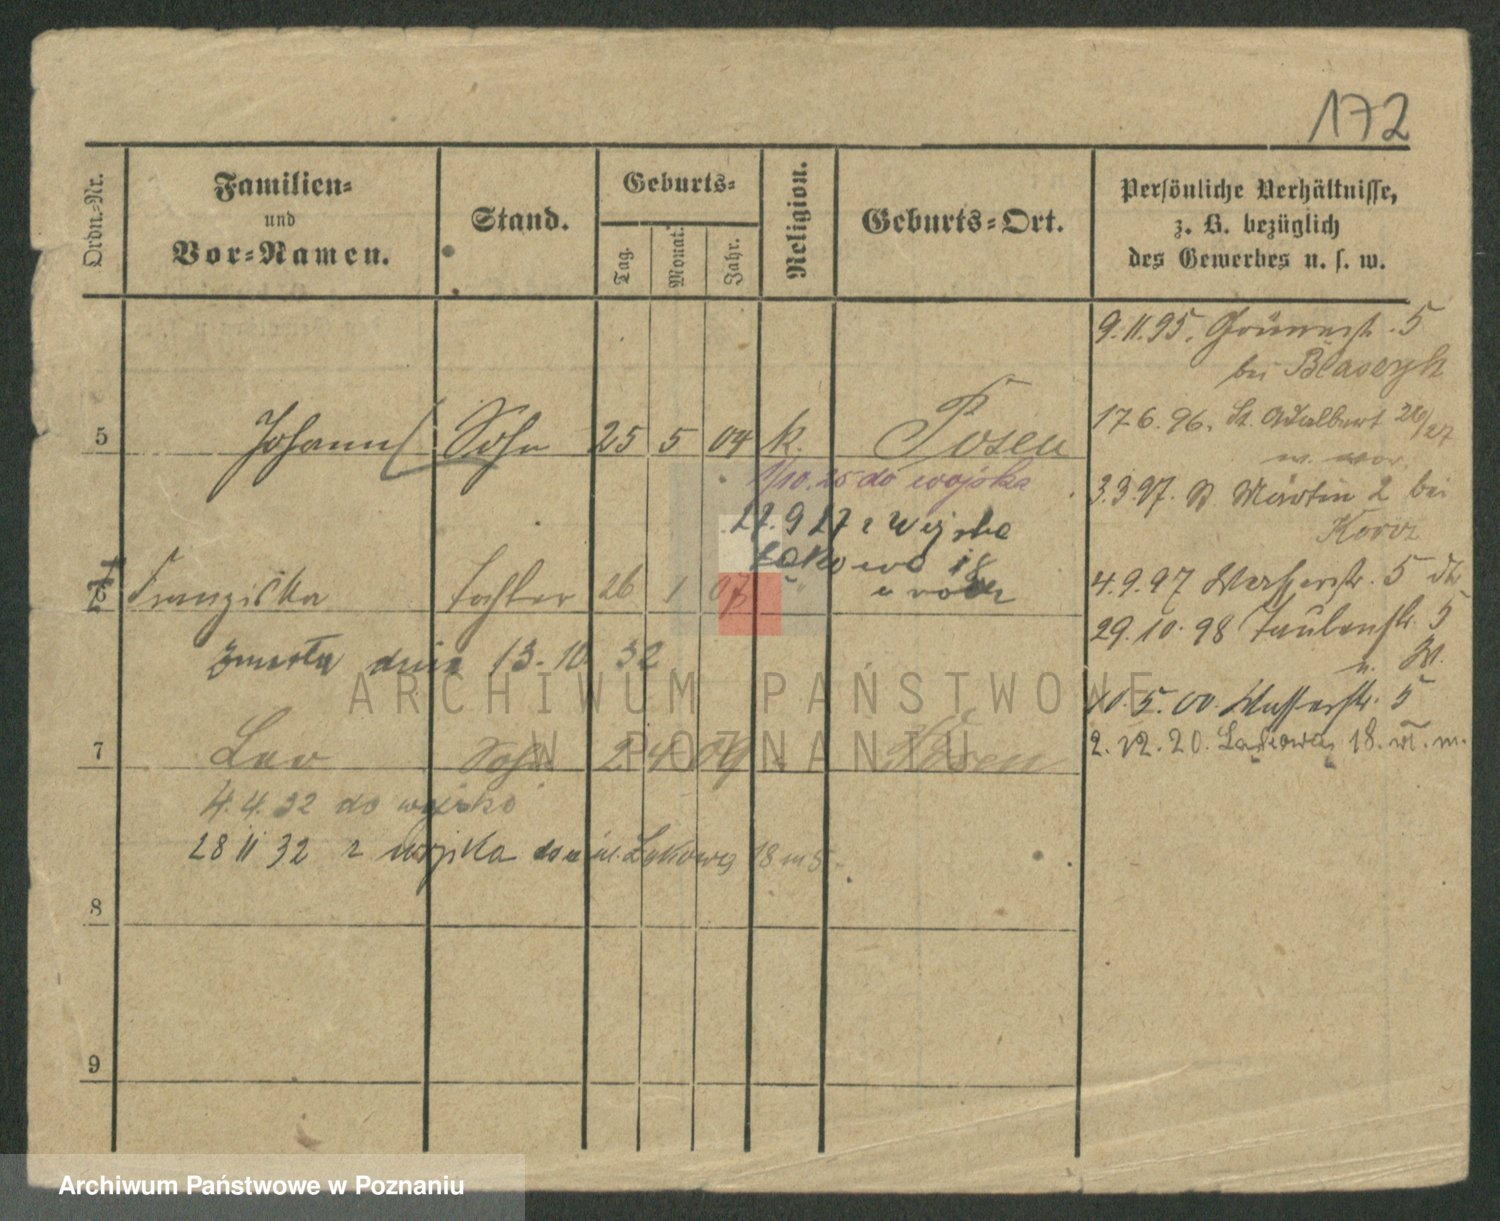 172
Ordn.-Nr.
Familien-
und
Vor-Namen.
Stand.
Geburts-
Tag.
Monat.
Jahr.
Religion.
Geburts-Ort.
Persönliche Verhältnisse,
z. B. bezüglich
des Gewerbes u. s. w.
9.11.95. Grünestr. 5
bei
5 Johann Sohn 25 5 04 k. Posen
17.6.96. St. Adalbert 26/27
1/10.25 do wojska
3.3.97. St Martin 2 bei
27.9 27 z wojska
Łąkowa 18
Franziska Tochter 26 1 07
4.9.97 Wasserstr. 5
29.10.98 Taubenstr. 5
zmarła dnia 13.10 32
10.5.00 Wasserstr. 5
2.12.20. Łąkowa 18.
7 Leo Sohn 2 4 09 Posen
4.4.32 do wojska
28 11 32 z wojska Łąkowa 18 m 5
8
9
ARCHIWUM PAŃSTWOWE
W POZNANIU
Archiwum Państwowe w Poznaniu